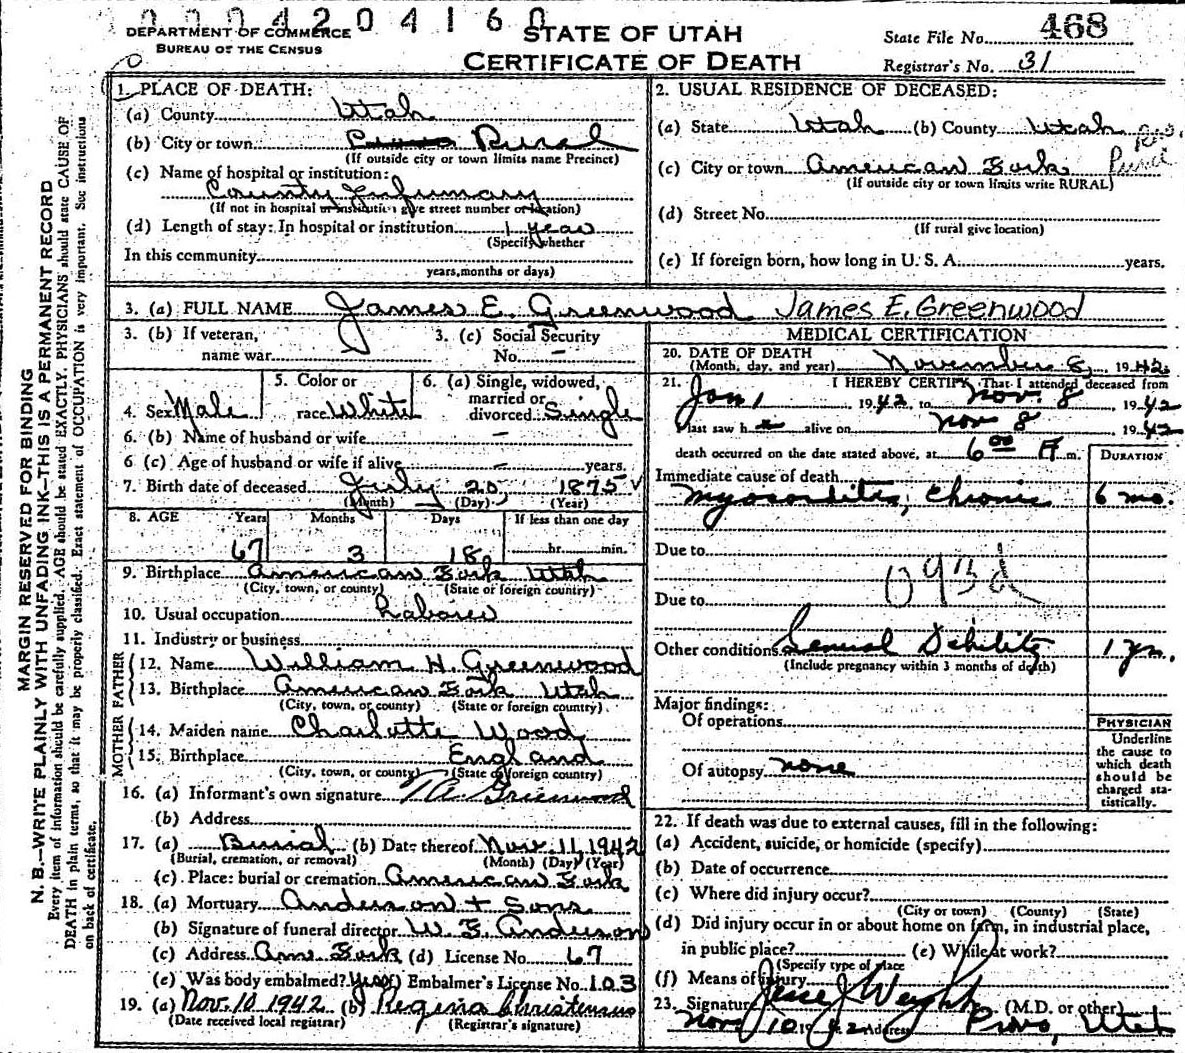 0004204160
DEPARTMENT OF COMMERCE
BUREAU OF THE CENSUS
STATE OF UTAH
CERTIFICATE OF DEATH
State File No. 468
Registrar's No. 31
MARGIN RESERVED FOR BINDING
N. B.—WRITE PLAINLY WITH UNFADING INK—THIS IS A PERMANENT RECORD
Every item of information should be carefully supplied. AGE should be stated EXACTLY. PHYSICIANS should state CAUSE OF
DEATH in plain terms, so that it may be properly classified. Exact statement of OCCUPATION is very important. See instructions
on back of certificate.
1. PLACE OF DEATH:
(a) County Utah
(b) City or town Rural
(If outside city or town limits name Precinct)
(c) Name of hospital or institution:
County Infirmary
(If not in hospital or institution give street number or location)
(d) Length of stay: In hospital or institution 1 year
(Specify whether
In this community
years, months or days)
2. USUAL RESIDENCE OF DECEASED:
(a) State Utah (b) County Utah
(c) City or town American Fork
(If outside city or town limits write RURAL)
(d) Street No.
(If rural give location)
(e) If foreign born, how long in U. S. A. years.
3. (a) FULL NAME James E. Greenwood James E. Greenwood
3. (b) If veteran, 3. (c) Social Security
name war No. —
4. Sex Male
5. Color or
race White
6. (a) Single, widowed,
married or
divorced Single
6. (b) Name of husband or wife —
6 (c) Age of husband or wife if alive — years.
7. Birth date of deceased July 20, 1875
(Month) (Day) (Year)
8. AGE Years Months Days If less than one day
67 3 18 hr. min.
9. Birthplace American Fork Utah
(City, town, or county) (State or foreign country)
10. Usual occupation Laborer
11. Industry or business
FATHER
12. Name William H. Greenwood
13. Birthplace American Fork Utah
(City, town, or county) (State or foreign country)
MOTHER
14. Maiden name Charlotte Wood
15. Birthplace England
(City, town, or county) (State or foreign country)
16. (a) Informant's own signature Greenwood
(b) Address
17. (a) Burial (b) Date thereof Nov. 11, 1942
(Burial, cremation, or removal) (Month) (Day) (Year)
(c) Place: burial or cremation American Fork
18. (a) Mortuary Anderson + Sons
(b) Signature of funeral director W. E. Anderson
(c) Address Am. Fork (d) License No. 67
(e) Was body embalmed? yes (f) Embalmer's License No. 103
19. (a) Nov. 10 1942 (b) Regina Christensen
(Date received local registrar) (Registrar's signature)
MEDICAL CERTIFICATION
20. DATE OF DEATH
(Month, day, and year) November 8, 1942
21. I HEREBY CERTIFY, That I attended deceased from
Jan 1 1942, to Nov. 8 1942
I last saw h alive on Nov 8 1942
death occurred on the date stated above, at 6 00 m.
DURATION
Immediate cause of death
Myocarditis, Chronic 6 mo.
Due to
093d
Due to
Other conditions General Debility 1 yr.
(Include pregnancy within 3 months of death)
Major findings:
Of operations
Of autopsy none
PHYSICIAN
Underline
the cause to
which death
should be
charged sta-
tistically.
22. If death was due to external causes, fill in the following:
(a) Accident, suicide, or homicide (specify)
(b) Date of occurrence
(c) Where did injury occur?
(City or town) (County) (State)
(d) Did injury occur in or about home on farm, in industrial place,
in public place? (e) While at work?
(Specify type of place
(f) Means of injury
23. Signature Jesse J Weight (M.D. or other)
Nov 10 19 42 Address Provo, Utah